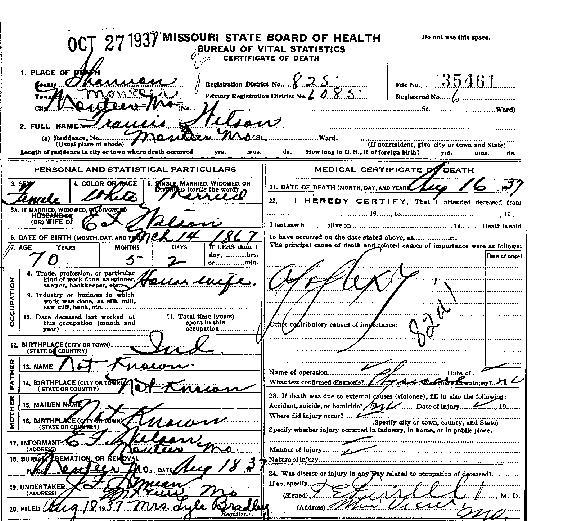 OCT 27 1937 MISSOURI STATE BOARD OF HEALTH
Do not use this space.
BUREAU OF VITAL STATISTICS
CERTIFICATE OF DEATH
1. PLACE OF DEATH
County Shannon Registration District No. 825 File No. 35461
Township Montier Primary Registration District No. 6085 Registered No. 6
City Monteer Mo. St. Ward)
2. FULL NAME Francis Wilson
(a) Residence, No. Monteer Mo. Ward.
(Usual place of abode) (If nonresident, give city or town and State)
Length of residence in city or town where death occurred yrs. mos. ds. How long in U. S., if of foreign birth? yrs. mos. ds.
PERSONAL AND STATISTICAL PARTICULARS
3. SEX 4. COLOR OR RACE 5. SINGLE, MARRIED, WIDOWED, OR
Female White Married
5A. IF MARRIED, WIDOWED, OR DIVORCED
HUSBAND OF
(OR) WIFE OF E F Wilson
6. DATE OF BIRTH (MONTH, DAY, AND YEAR) Mch 14 1867
7. AGE YEARS MONTHS DAYS If LESS than 1
70 5 2 day, hrs.
or min.
OCCUPATION
8. Trade, profession, or particular
kind of work done, as spinner,
sawyer, bookkeeper, etc. House wife.
9. Industry or business in which
work was done, as silk mill,
saw mill, bank, etc.
10. Date deceased last worked at
this occupation (month and
year)
11. Total time (years)
spent in this
occupation
12. BIRTHPLACE (CITY OR TOWN) Ind
(STATE OR COUNTRY)
FATHER
13. NAME Not Known
14. BIRTHPLACE (CITY OR TOWN) Not Known
(STATE OR COUNTRY)
MOTHER
15. MAIDEN NAME Not Known
16. BIRTHPLACE (CITY OR TOWN)
(STATE OR COUNTRY)
17. INFORMANT E F Wilson
(ADDRESS) Monteer Mo
18. BURIAL, CREMATION, OR REMOVAL
Place Monteer Mo. Date Aug 18 37
19. UNDERTAKER
(ADDRESS) Mo
20. Filed Aug 18 1937 Mrs Lyle Bradley
MEDICAL CERTIFICATE OF DEATH
21. DATE OF DEATH (MONTH, DAY, AND YEAR) Aug 16 37
22. I HEREBY CERTIFY, That I attended deceased from
19 to 19
I last saw h alive on 19 Death is said
to have occurred on the date stated above, at m.
The principal cause of death and related causes of importance were as follows:
Date of onset
Apoplexy
82a1
Other contributory causes of importance:
Name of operation Date of
What test confirmed diagnosis? Was there an autopsy? no
23. If death was due to external causes (violence), fill in also the following:
Accident, suicide, or homicide? no Date of injury 19
Where did injury occur?
(Specify city or town, county, and State)
Specify whether injury occurred in industry, in home, or in public place.
Manner of injury
Nature of injury
24. Was disease or injury in any way related to occupation of deceased?
(Signed) M. D.
(Address) Mo